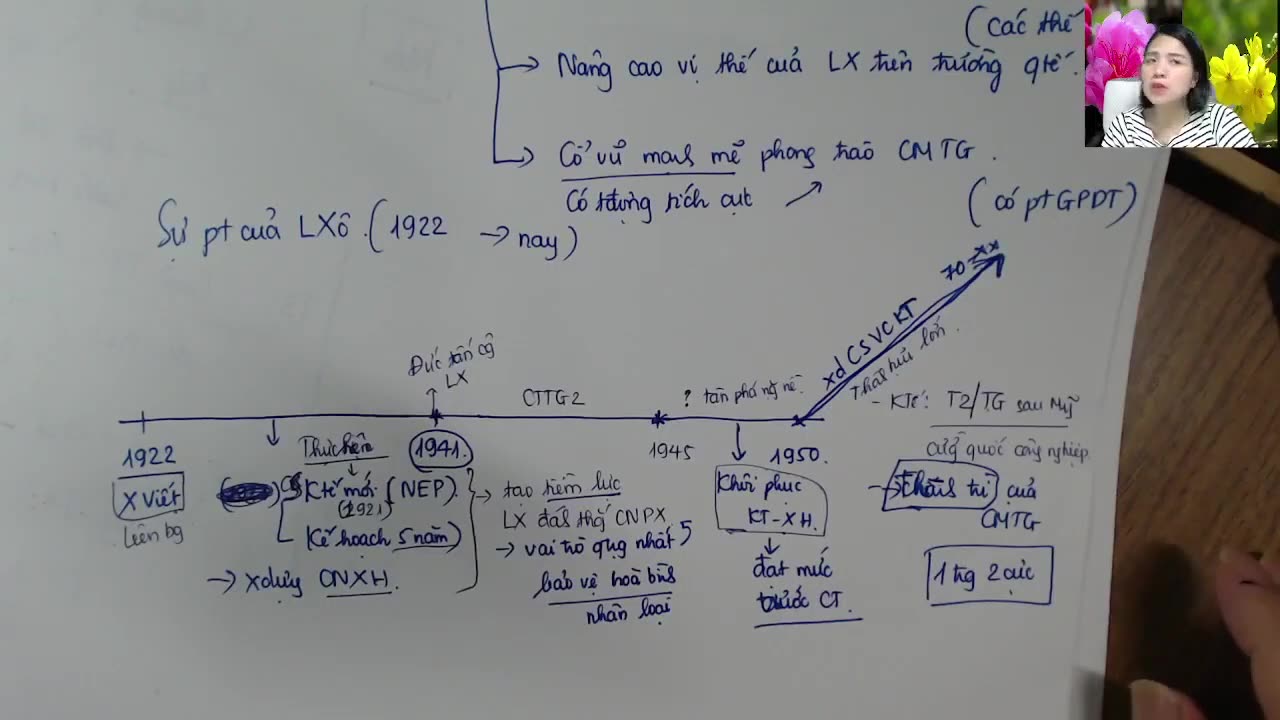 (các thế
→ Nâng cao vị thế của LX trên trường qtế.
→ Cổ vũ mạnh mẽ phong trào CMTG.
Có tđụng tích cực
(có pt GPDT)
Sự pt của LXô. (1922 → nay)
70-XX
xd CSVCKT
Thành tựu lớn.
Đức tấn cg
LX
CTTG2
? tàn phá ng nề
- KTế: T2/TG sau Mỹ
1922
Thực hiện
1941.
1945
1950.
cường quốc công nghiệp.
X Viết
Liên bg
CS Ktế mới (NEP).
(1921)
Kế hoạch 5 năm)
→ Xdựng CNXH.
→ tạo tiềm lực
LX đánh thg CNPX
→ vai trò qtrg nhất
bảo vệ hoà bình
nhân loại
Khôi phục
KT-XH.
đạt mức
trước CT.
→ thành trì của
CMTG
1 tg 2 cực